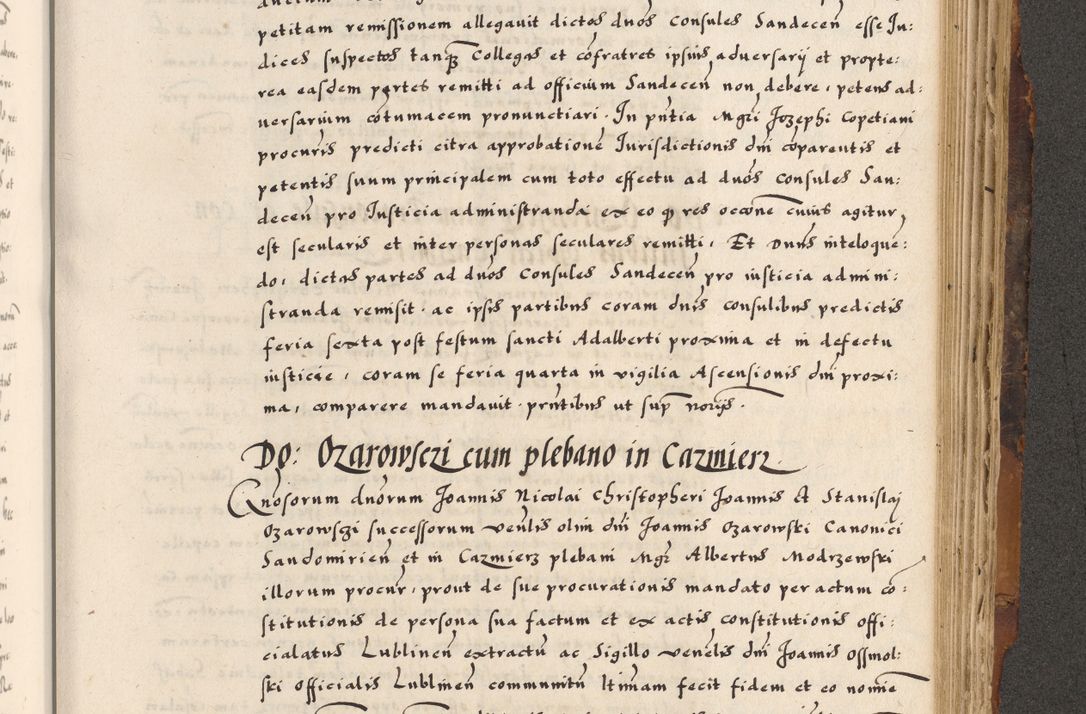 petitam remissionem allegavit dictos duos Consules Sandeceñ esse Ju:
dices suspectos tanq̃ Collegas et cõfratres ipsius adversarij et propte:
rea easdem partes remitti ad officium Sandeceñ non debere, petens ad:
versarium cõtumacem pronunctiari. In pñtia Mgrĩ Jozephi Copetiani
procuris predicti citra approbationẽ Jurisdictionis dnĩ cõparentis et
petentis suum principalem cum toto effectu ad duos Consules San:
deceñ pro Justicia administranda ex eo q̃ res occõne cuius agitur,
est secularis et inter personas seculares remitti, Et Dnus inteloquẽ:
do, dictas partes ad duos Consules Sandeceñ pro iusticia admini:
stranda remisit. ac ipsis partibus coram dnis consulibus predictis
feria sexta post festum sancti Adalberti proxima et in defectu
iusticie, coram se feria quarta in vigilia Ascensionis dnĩ proxi:
ma, comparere mandavit. prñtibus ut sup̃ norijs.
Do: Ozarowsczi cum plebano in Cazmierz
Gnosorum duorum Joannis Nicolai Christopheri Joannis Et Stanislaj
Ozarowsgi successorum venlis olim dnĩ Joannis Ozarowski Canonici
Sandomirieñ et in Cazmierz plebani Mgr Albertus Modrzewski
illorum procur, prout de sue procurationis mandato per actum cõ:
stitutionis de persona sua factum et ex actis constitutionis offi:
cialatus Lublineñ extractũ ac Sigillo venelis dnĩ Joannis Ossmol:
ski officialis Lublineñ communitũ ltimam fecit fidem et eo nomie